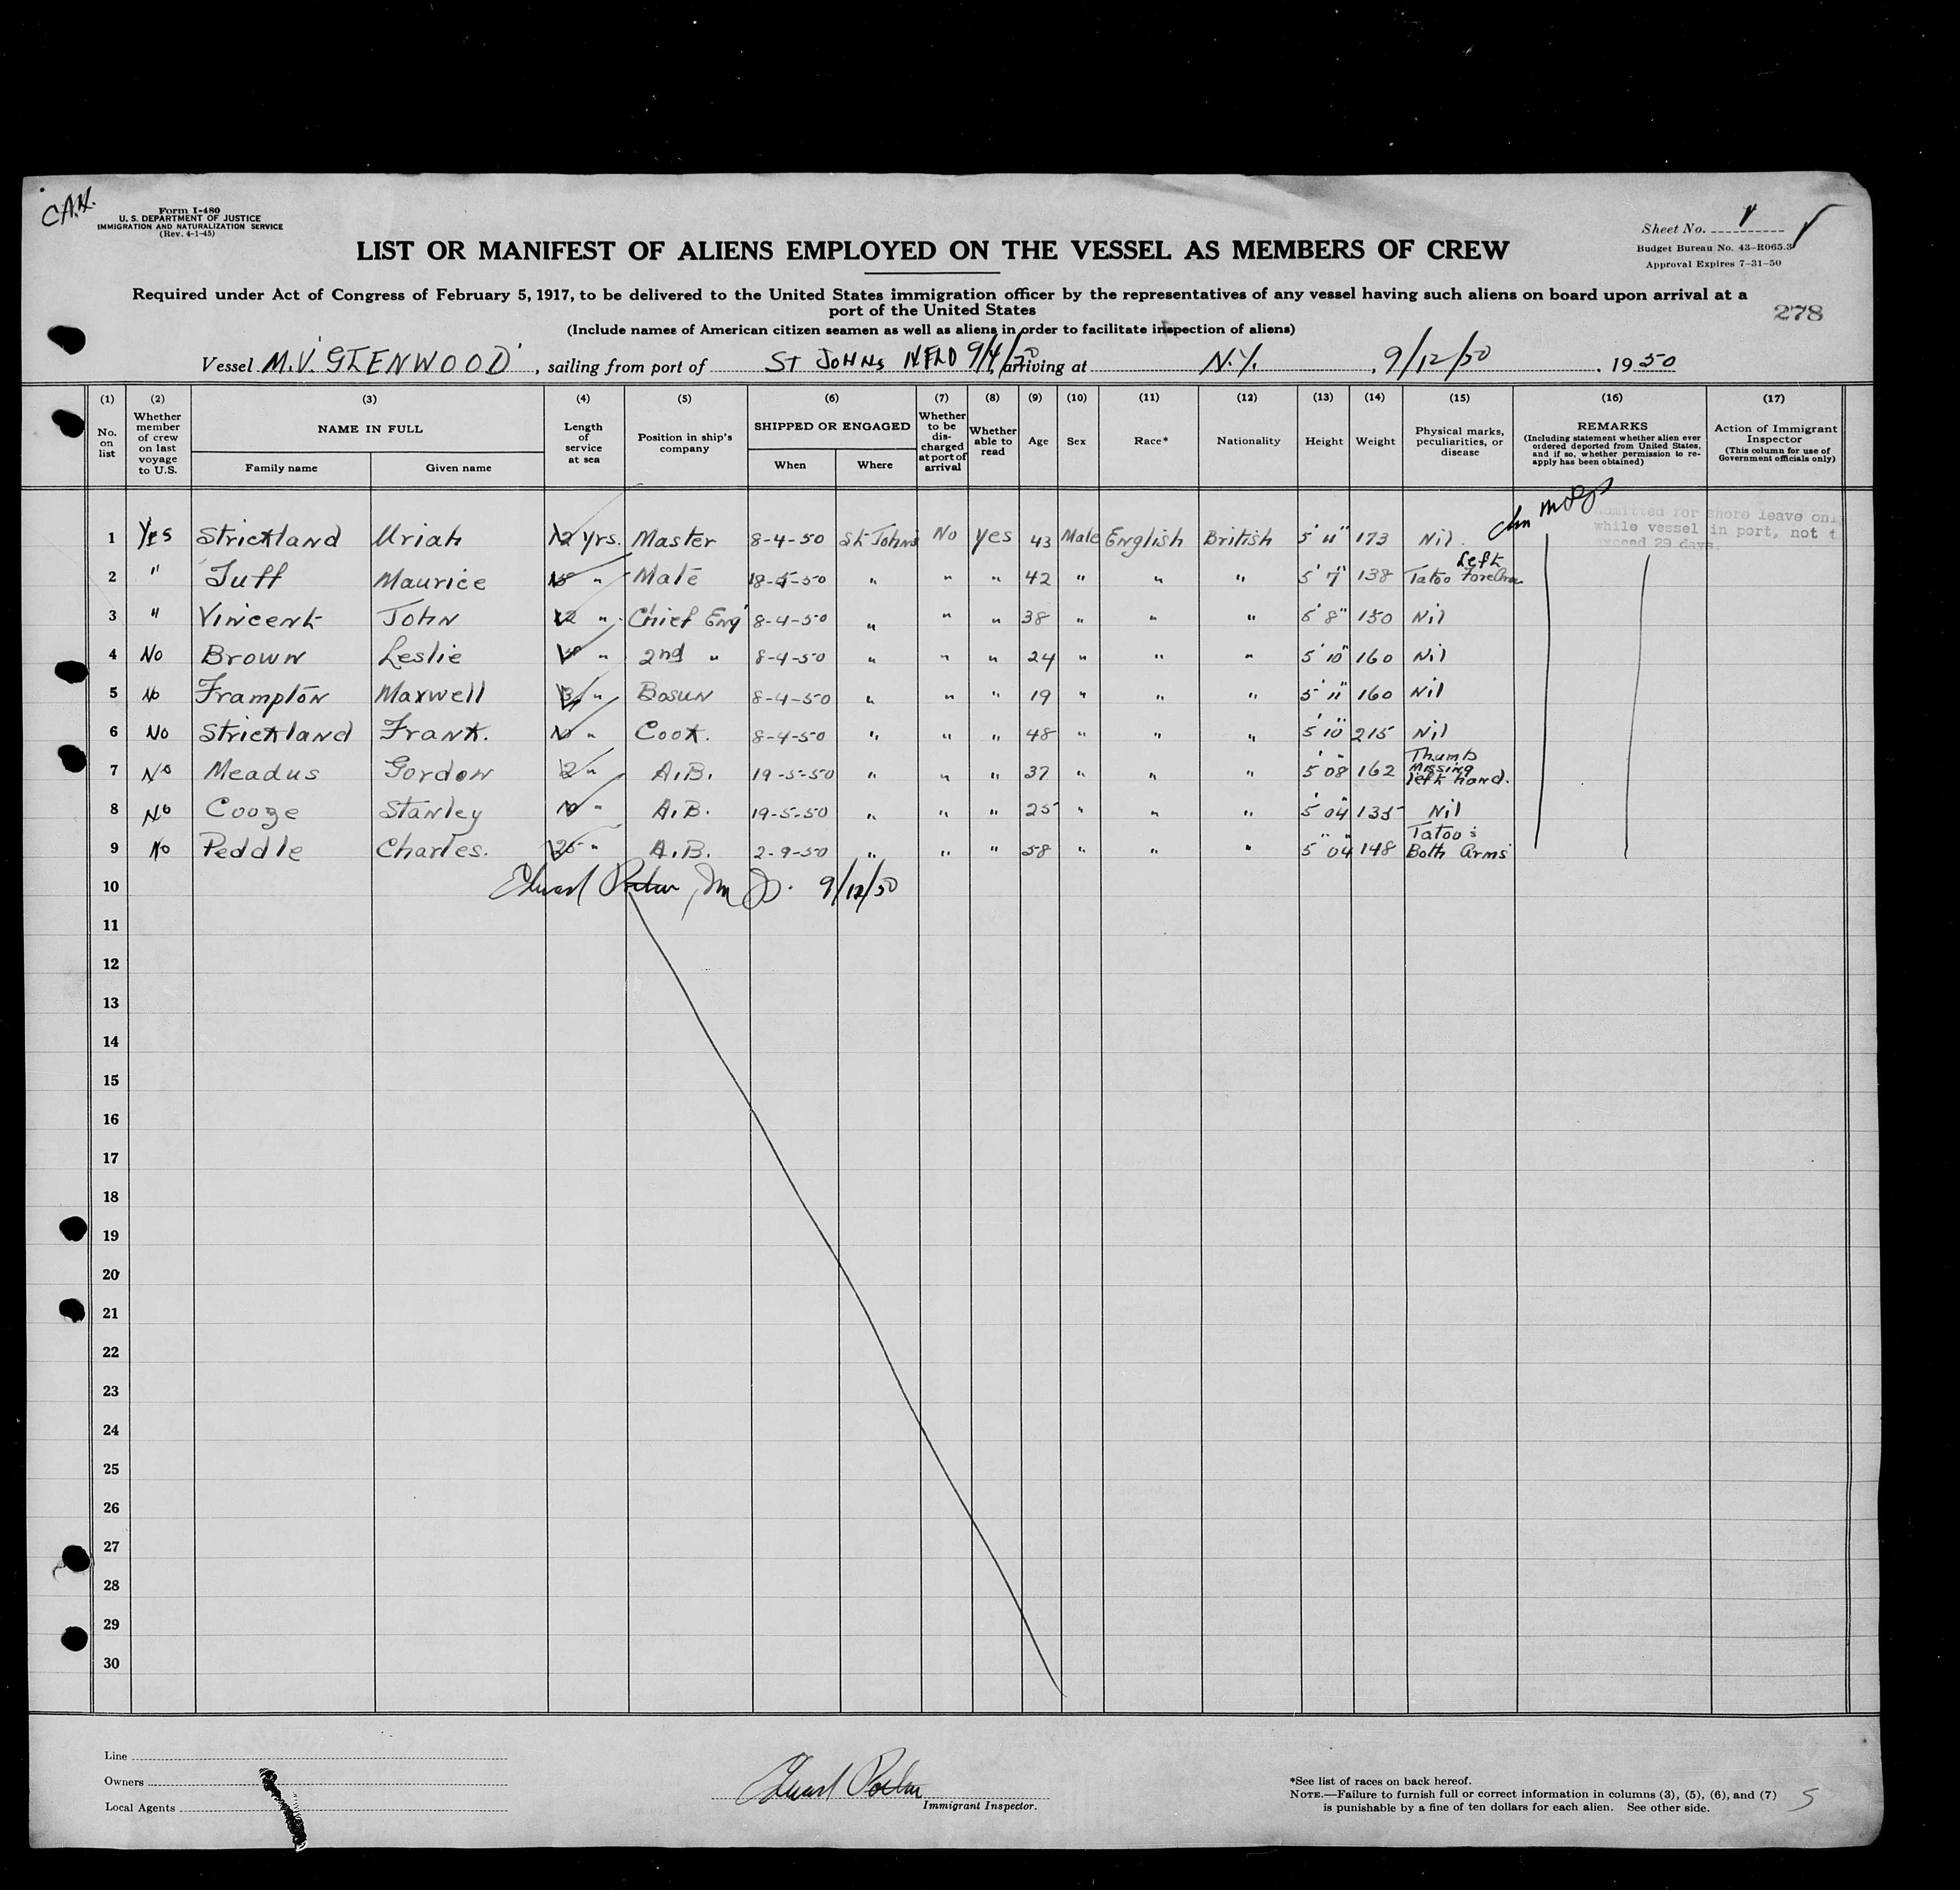 CAN.
Form I-480
U. S. DEPARTMENT OF JUSTICE
IMMIGRATION AND NATURALIZATION SERVICE
(Rev. 4-1-45)
Sheet No. 1
Budget Bureau No. 43-R065.3
Approval Expires 7-31-50
LIST OR MANIFEST OF ALIENS EMPLOYED ON THE VESSEL AS MEMBERS OF CREW
Required under Act of Congress of February 5, 1917, to be delivered to the United States immigration officer by the representatives of any vessel having such aliens on board upon arrival at a
port of the United States
278
(Include names of American citizen seamen as well as aliens in order to facilitate inspection of aliens)
Vessel M.V. GLENWOOD, sailing from port of ST JOHNS NFLD 9/4/50 arriving at N.Y., 9/12/50, 1950
(1) (2) (3) (4) (5) (6) (7) (8) (9) (10) (11) (12) (13) (14) (15) (16) (17)
No. on list
Whether member of crew on last voyage to U.S.
NAME IN FULL
Family name
Given name
Length of service at sea
Position in ship's company
SHIPPED OR ENGAGED
When
Where
Whether to be discharged at port of arrival
Whether able to read
Age
Sex
Race*
Nationality
Height
Weight
Physical marks, peculiarities, or disease
REMARKS
(Including statement whether alien ever ordered deported from United States, and if so, whether permission to re-apply has been obtained)
Action of Immigrant Inspector
(This column for use of Government officials only)
admitted for shore leave only
while vessel in port, not t
exceed 29 days.
1 Yes Strickland Uriah 12 yrs. Master 8-4-50 St. Johns No Yes 43 Male English British 5' 11" 173 Nil.
2 " Tuff Maurice " Mate 18-5-50 " " " 42 " " " 5' 7" 138 Tatoo Left Forearm
3 " Vincent John 12 " Chief Eng 8-4-50 " " " 38 " " " 5' 8" 150 Nil
4 No Brown Leslie " 2nd " 8-4-50 " " " 24 " " " 5' 10" 160 Nil
5 No Frampton Maxwell 3 " Bosun 8-4-50 " " " 19 " " " 5' 11" 160 Nil
6 No Strickland Frank. " Cook. 8-4-50 " " " 48 " " " 5' 10" 215 Nil
7 No Meadus Gordon 2 " A.B. 19-5-50 " " " 37 " " " 5' 08" 162 Thumb Missing left hand.
8 No Cooze Stanley " A.B. 19-5-50 " " " 25 " " " 5' 04" 135 Nil
9 No Peddle Charles. 25 " A.B. 2-9-50 " " " 58 " " " 5' 04" 148 Tatoo's Both Arms
10 9/12/50
11
12
13
14
15
16
17
18
19
20
21
22
23
24
25
26
27
28
29
30
Line
Owners
Local Agents
Immigrant Inspector.
*See list of races on back hereof.
NOTE.—Failure to furnish full or correct information in columns (3), (5), (6), and (7)
is punishable by a fine of ten dollars for each alien. See other side.
5